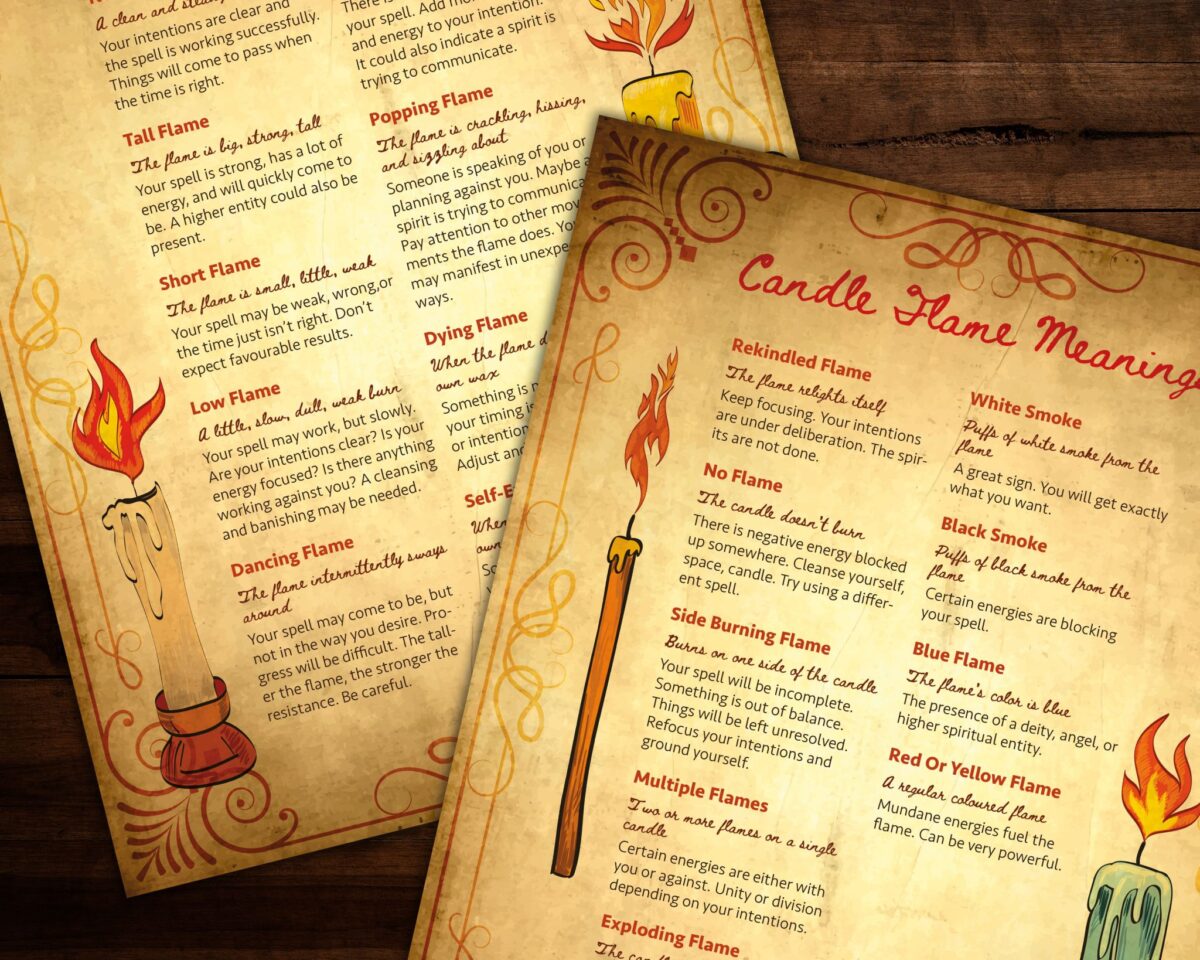 A clean and
Your intentions are clear and
the spell is working successfully.
Things will come to pass when
the time is right.
Tall Flame
The flame is big, strong, tall
Your spell is strong, has a lot of
energy, and will quickly come to
be. A higher entity could also be
present.
Short Flame
The flame is small, little, weak
Your spell may be weak, wrong,or
the time just isn't right. Don't
expect favourable results.
Low Flame
A little, slow, dull, weak burn
Your spell may work, but slowly.
Are your intentions clear? Is your
energy focused? Is there anything
working against you? A cleansing
and banishing may be needed.
Dancing Flame
The flame intermittently sways
around
Your spell may come to be, but
not in the way you desire. Pro-
gress will be difficult. The tall-
er the flame, the stronger the
resistance. Be careful.
There is
your spell. Add
and energy to your intention.
It could also indicate a spirit is
trying to communicate.
Popping Flame
The flame is crackling, hissing,
and sizzling about
Someone is speaking of you or
planning against you. Maybe a
spirit is trying to communica
Pay attention to other mov
ments the flame does. Yo
may manifest in unexpe
ways.
Dying Flame
When the flame d
own wax
Something is n
your timing is
or intention
Adjust and
Self-E
When
own
So
Candle Flame Meaning
Rekindled Flame
The flame relights itself
Keep focusing. Your intentions
are under deliberation. The spir-
its are not done.
No Flame
The candle doesn't burn
There is negative energy blocked
up somewhere. Cleanse yourself,
space, candle. Try using a differ-
ent spell.
Side Burning Flame
Burns on one side of the candle
Your spell will be incomplete.
Something is out of balance.
Things will be left unresolved.
Refocus your intentions and
ground yourself.
Multiple Flames
Two or more flames on a single
candle
Certain energies are either with
you or against. Unity or division
depending on your intentions.
Exploding Flame
The
White Smoke
Puffs of white smoke from the
flame
A great sign. You will get exactly
what you want.
Black Smoke
Puffs of black smoke from the
flame
Certain energies are blocking
your spell.
Blue Flame
The flame's color is blue
The presence of a deity, angel, or
higher spiritual entity.
Red Or Yellow Flame
A regular coloured flame
Mundane energies fuel the
flame. Can be very powerful.